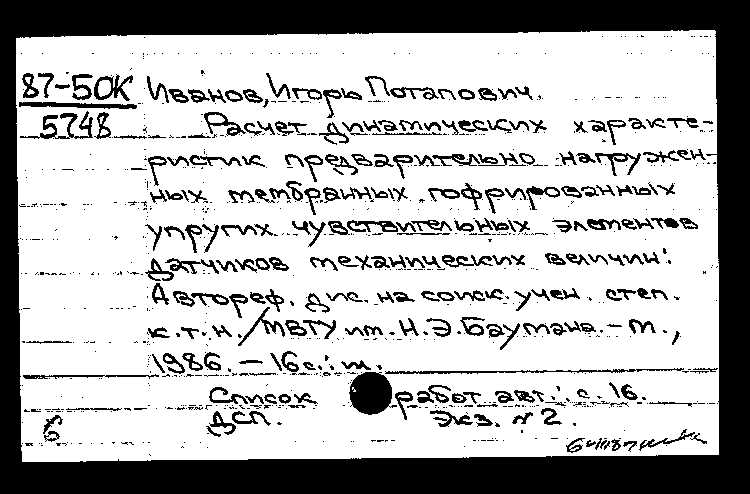 87-5ОК Иванов, Игорь Потапович.
5748 Расчет динамических характе-
ристик предварительно нагружен-
ных мембранных гофрированных
упругих чувствительных элементов
датчиков механических величин:
Автореф. дис. на соиск. учен. степ.
к.т.н./МВТУ им. Н.Э.Баумана. – М.,
1986. – 16 с.: ил.
Список работ авт.: с. 16.
ДСП. Экз. № 2.
б